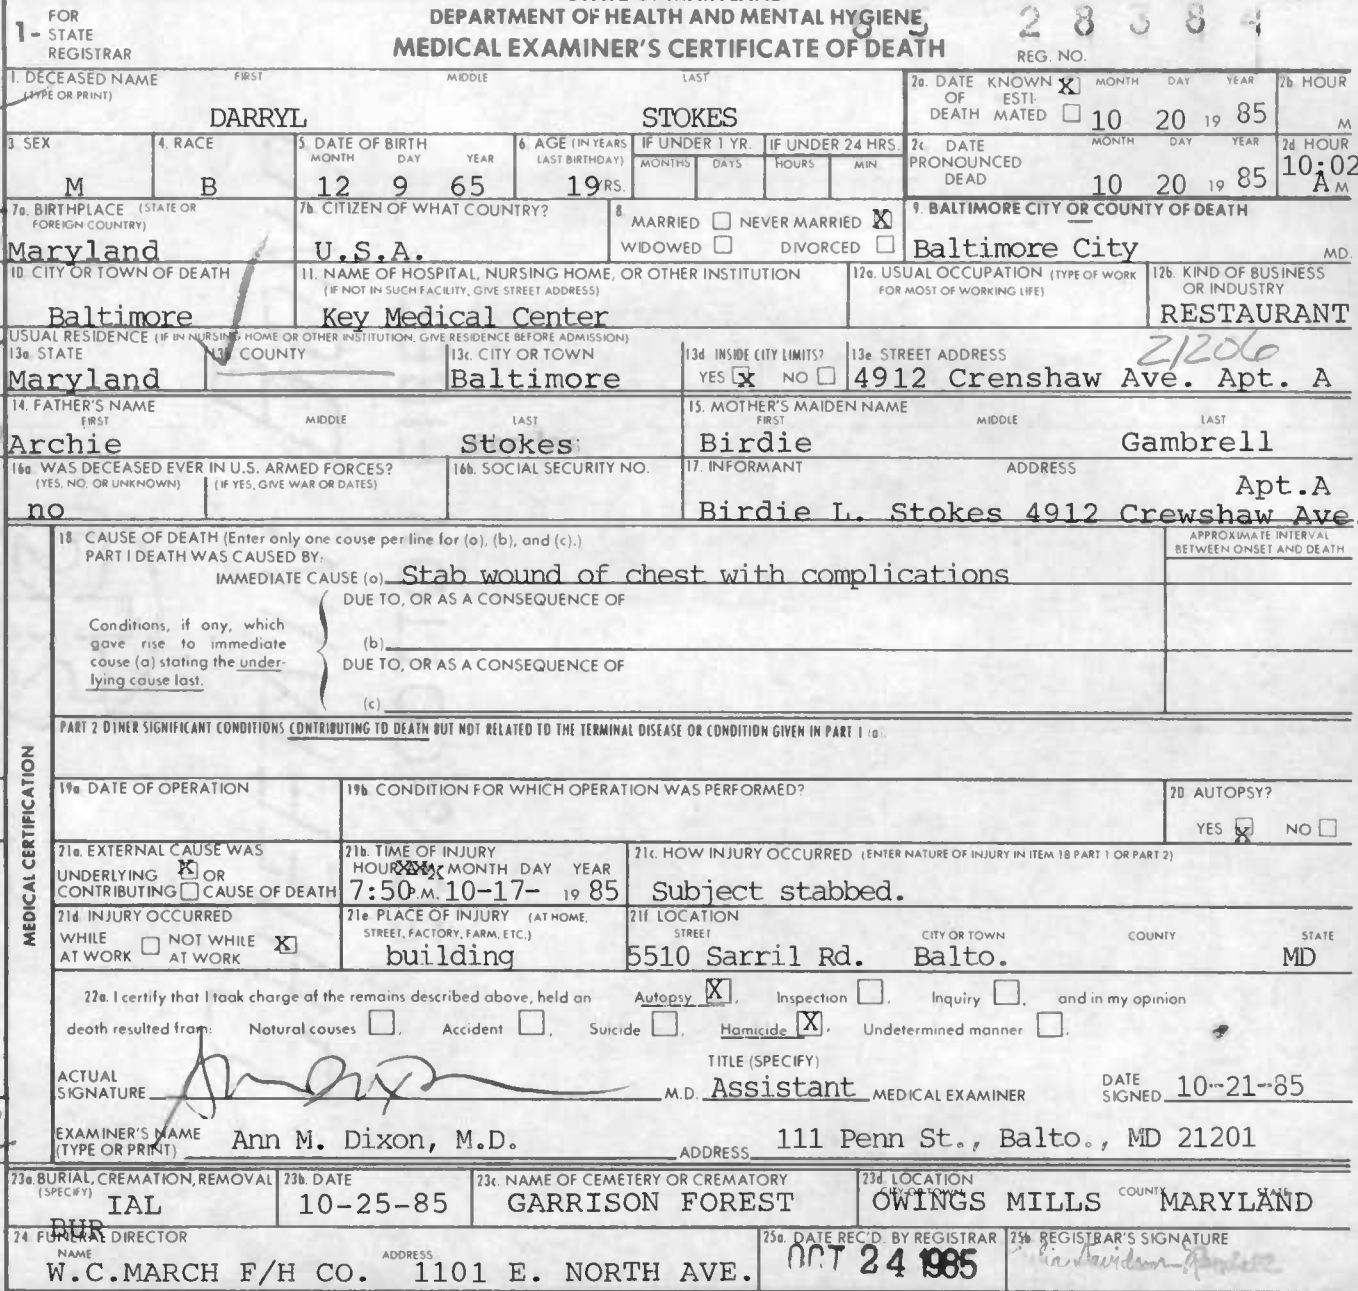 1- FOR STATE REGISTRAR
DEPARTMENT OF HEALTH AND MENTAL HYGIENE
MEDICAL EXAMINER'S CERTIFICATE OF DEATH
85 28384
REG. NO.
1. DECEASED NAME (TYPE OR PRINT) FIRST MIDDLE LAST
DARRYL STOKES
2a. DATE OF DEATH KNOWN X ESTIMATED MONTH DAY YEAR 2b HOUR
10 20 19 85 M
3 SEX 4. RACE 5. DATE OF BIRTH MONTH DAY YEAR 6. AGE (IN YEARS LAST BIRTHDAY) IF UNDER 1 YR. MONTHS DAYS IF UNDER 24 HRS. HOURS MIN.
M B 12 9 65 19 YRS.
2c DATE PRONOUNCED DEAD MONTH DAY YEAR 2d HOUR
10 20 19 85 10:02 A M
7a. BIRTHPLACE (STATE OR FOREIGN COUNTRY) 7b. CITIZEN OF WHAT COUNTRY?
Maryland U.S.A.
8. MARRIED NEVER MARRIED X
WIDOWED DIVORCED
9. BALTIMORE CITY OR COUNTY OF DEATH
Baltimore City MD.
10. CITY OR TOWN OF DEATH 11. NAME OF HOSPITAL, NURSING HOME, OR OTHER INSTITUTION (IF NOT IN SUCH FACILITY, GIVE STREET ADDRESS)
Baltimore Key Medical Center
12a. USUAL OCCUPATION (TYPE OF WORK FOR MOST OF WORKING LIFE) 12b. KIND OF BUSINESS OR INDUSTRY
RESTAURANT
USUAL RESIDENCE (IF IN NURSING HOME OR OTHER INSTITUTION, GIVE RESIDENCE BEFORE ADMISSION)
13a STATE 13b COUNTY 13c. CITY OR TOWN 13d INSIDE CITY LIMITS? 13e STREET ADDRESS 21206
Maryland Baltimore YES X NO 4912 Crenshaw Ave. Apt. A
14. FATHER'S NAME FIRST MIDDLE LAST 15. MOTHER'S MAIDEN NAME FIRST MIDDLE LAST
Archie Stokes Birdie Gambrell
16a WAS DECEASED EVER IN U.S. ARMED FORCES? (YES, NO, OR UNKNOWN) (IF YES, GIVE WAR OR DATES) 16b. SOCIAL SECURITY NO. 17. INFORMANT ADDRESS
Apt.A
no Birdie L. Stokes 4912 Crewshaw Ave
MEDICAL CERTIFICATION
18 CAUSE OF DEATH (Enter only one cause per line for (a), (b), and (c).)
APPROXIMATE INTERVAL BETWEEN ONSET AND DEATH
PART I DEATH WAS CAUSED BY:
IMMEDIATE CAUSE (a) Stab wound of chest with complications
DUE TO, OR AS A CONSEQUENCE OF
Conditions, if any, which gave rise to immediate cause (a) stating the underlying cause last.
(b)
DUE TO, OR AS A CONSEQUENCE OF
(c)
PART 2 OTHER SIGNIFICANT CONDITIONS CONTRIBUTING TO DEATH BUT NOT RELATED TO THE TERMINAL DISEASE OR CONDITION GIVEN IN PART 1 (a)
19a DATE OF OPERATION 19b CONDITION FOR WHICH OPERATION WAS PERFORMED? 20 AUTOPSY?
YES X NO
21a. EXTERNAL CAUSE WAS
UNDERLYING X OR
CONTRIBUTING CAUSE OF DEATH
21b. TIME OF INJURY
HOUR MONTH DAY YEAR
7:50 P.M. 10-17- 19 85
21c. HOW INJURY OCCURRED (ENTER NATURE OF INJURY IN ITEM 18 PART 1 OR PART 2)
Subject stabbed.
21d INJURY OCCURRED
WHILE AT WORK NOT WHILE AT WORK X
21e PLACE OF INJURY (AT HOME, STREET, FACTORY, FARM, ETC.)
building
21f LOCATION STREET CITY OR TOWN COUNTY STATE
5510 Sarril Rd. Balto. MD
22a. I certify that I took charge of the remains described above, held an Autopsy X, Inspection, Inquiry, and in my opinion
death resulted from: Natural causes, Accident, Suicide, Homicide X, Undetermined manner.
ACTUAL SIGNATURE M.D. TITLE (SPECIFY) Assistant MEDICAL EXAMINER DATE SIGNED 10-21-85
EXAMINER'S NAME (TYPE OR PRINT) Ann M. Dixon, M.D. ADDRESS 111 Penn St., Balto., MD 21201
23a. BURIAL, CREMATION, REMOVAL (SPECIFY) 23b. DATE 23c. NAME OF CEMETERY OR CREMATORY 23d. LOCATION CITY OR TOWN COUNTY STATE
IAL 10-25-85 GARRISON FOREST OWINGS MILLS MARYLAND
BUR
24 FUNERAL DIRECTOR
NAME ADDRESS
W.C.MARCH F/H CO. 1101 E. NORTH AVE.
25a. DATE REC'D. BY REGISTRAR 25b. REGISTRAR'S SIGNATURE
OCT 24 1985